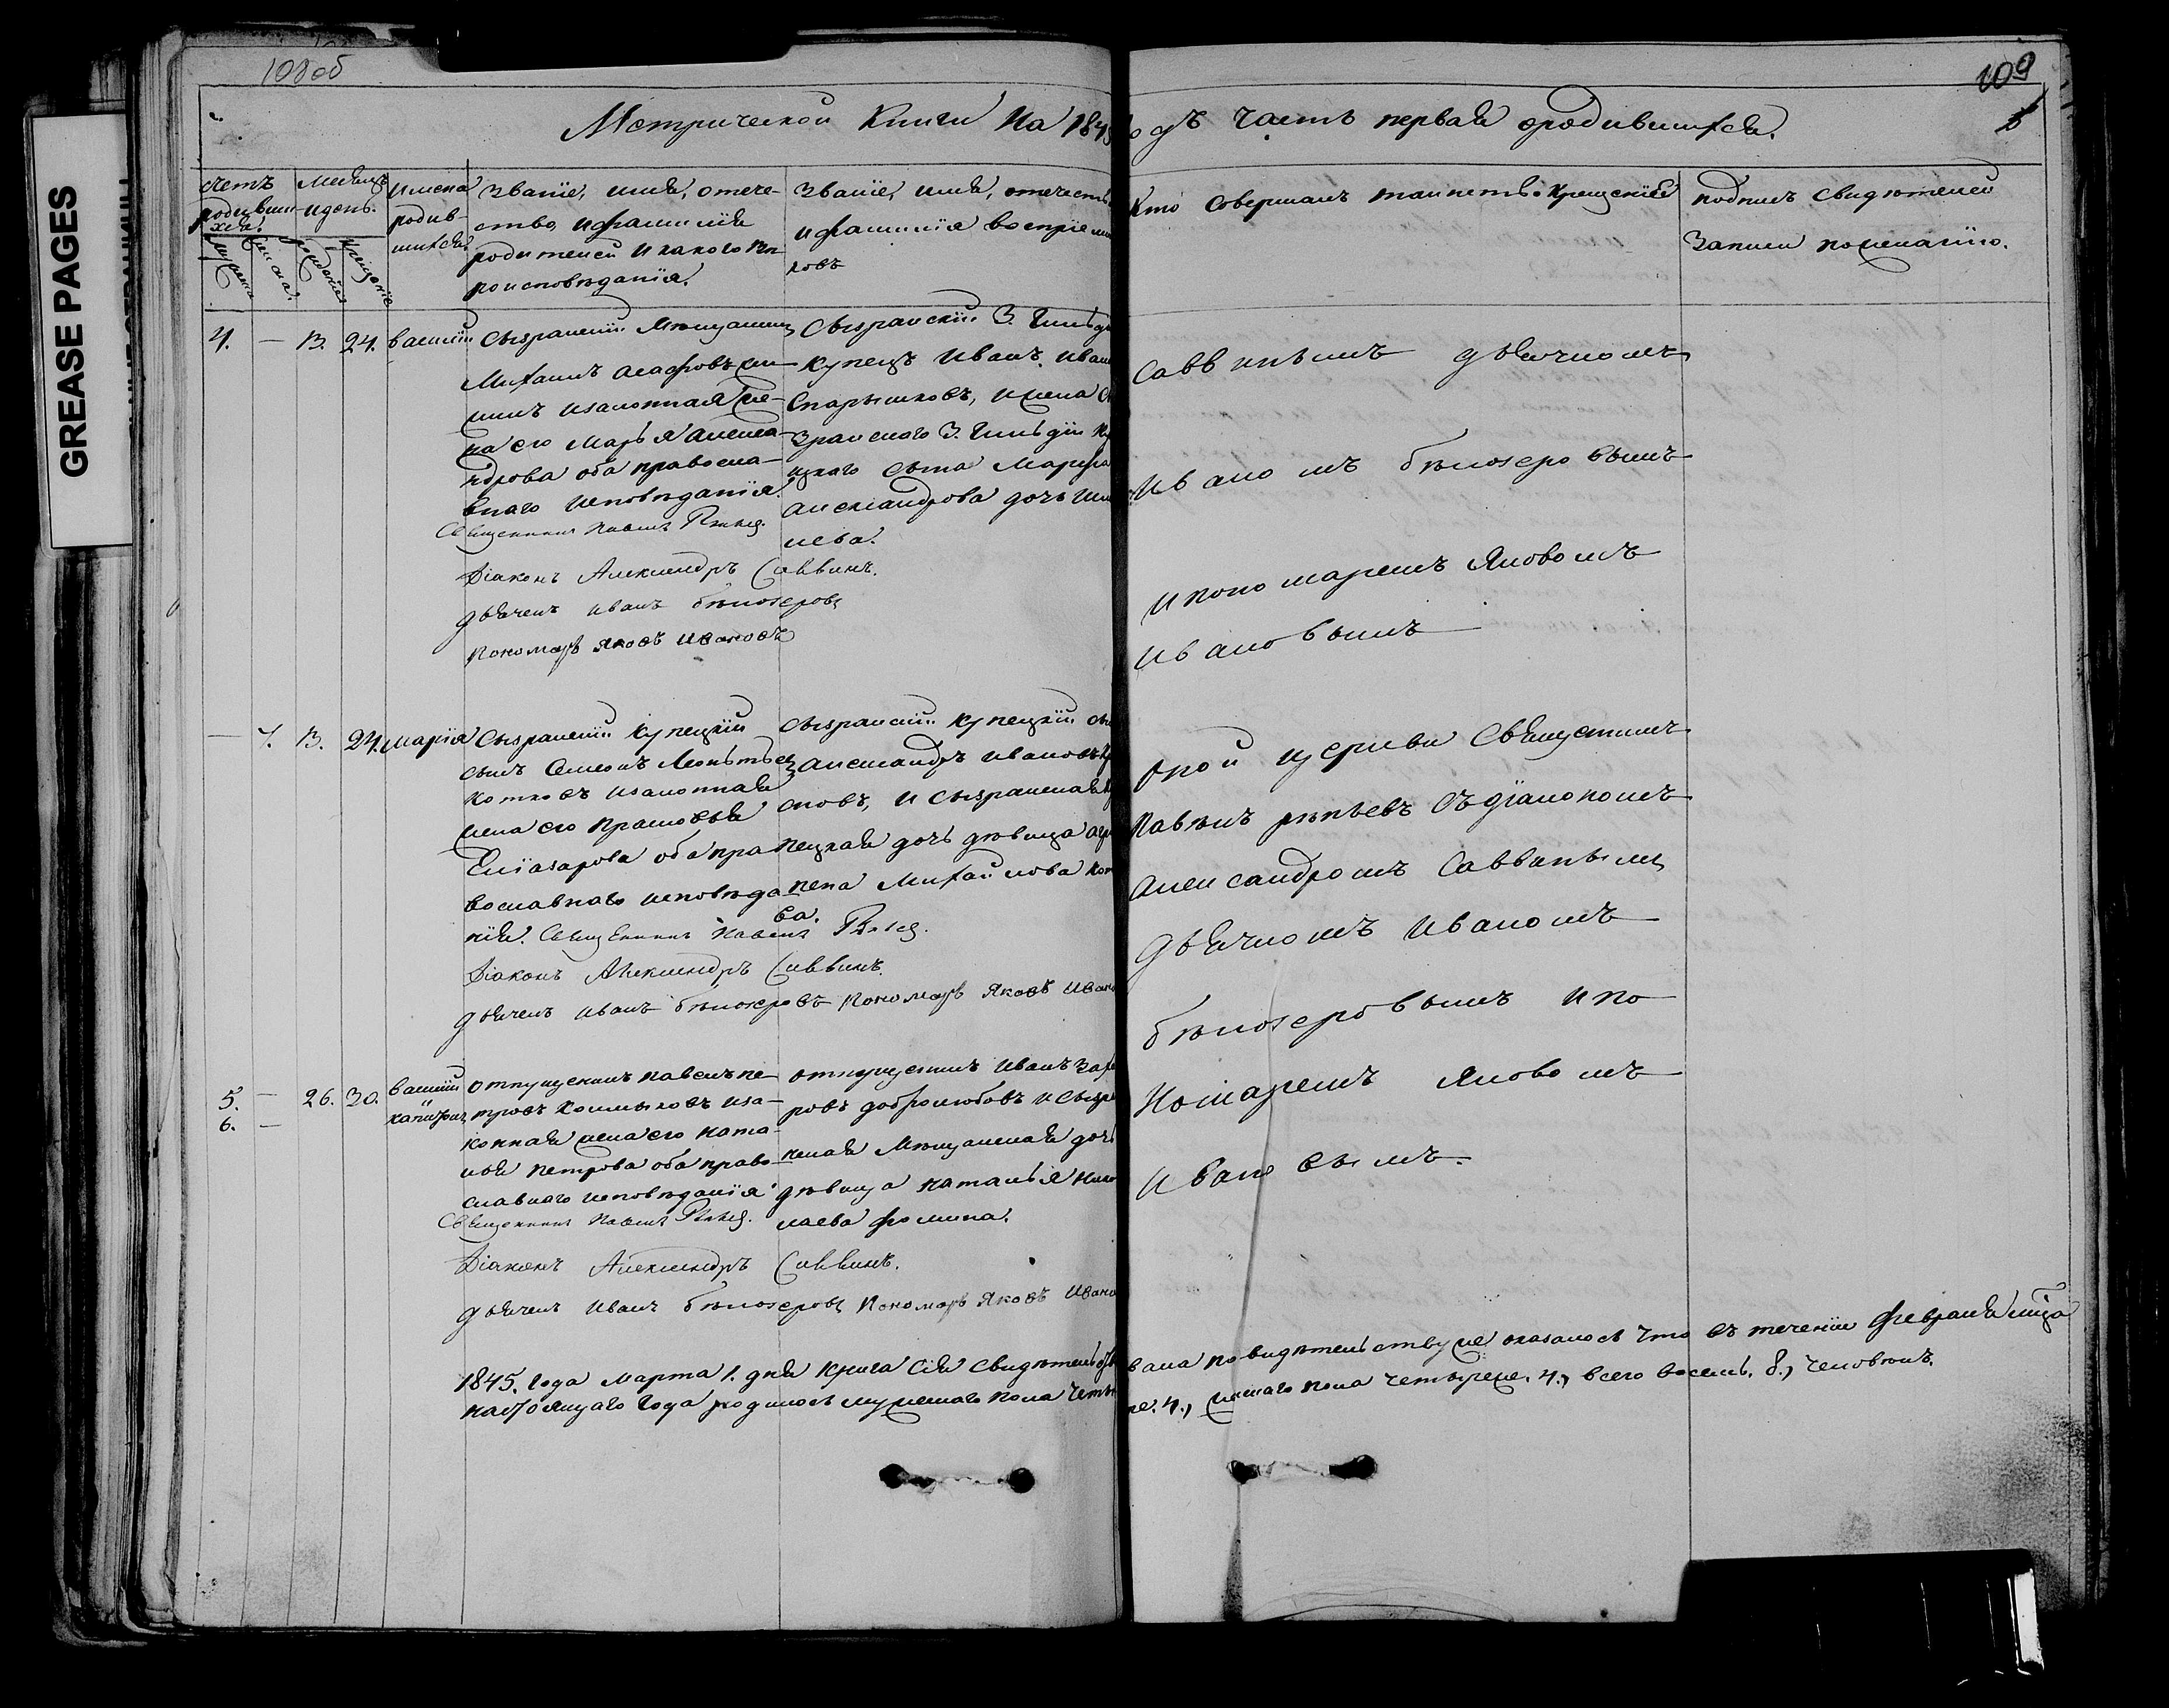 108 об
109
Метрической Книги на 1845
одъ часть первая ородившихся.
счетъ родившихся.
Месяцъ идень.
Имена родившихся
Званіе, имя, отечество, ифамилія родителей и какого вероисповѣданія.
Званіе, имя, отечеств
ифамилія воспріемни
ковъ
Кто совершалъ таинство Крещенія
подпись свидѣтелей
записи пожеланію.
рожденія
Крещенія
4. — 13. 24. василій
Сызранскій Мѣщанинъ
Михаилъ
изаконная же-
на его Марья алекса-
ндрова оба правосла-
внаго исповѣданія.
Священникъ Павелъ
Діаконъ Александръ Саввинъ.
дьячекъ иванъ бѣлозеровъ
Пономарь Яковъ Ивановъ
Сызранскій 3. Гильд
купецъ Иванъ Иван
и жена С
зранского 3. Гильдіи Ку
пцкаго сына Марфа
александрова дочь
Саввинымъ дьячкомъ
Иваномъ бѣлозеровымъ
и пономаремъ Яковомъ
Ивановымъ
— 4. 13. 24. Марія
Сызранскій купецкій
сынъ Семенъ Леонтьевъ
Котковъ изаконная
жена его Прасковья
Еліазарова оба пра
вославнаго исповѣда
нія. Священникъ Павелъ
Діаконъ Александръ Саввинъ.
дьячекъ иванъ бѣлозеровъ Пономарь Яковъ Ивано
Сызранскій купецкій сы
Александръ Ивановъ
новъ, и сызранская
пецкая дочь дѣвица агр
пена Михайлова Кот
ва.
оной церкви Священникъ
Павелъ рѣпьевъ съдіакономъ
Александромъ Саввинымъ
дьячкомъ Иваномъ
бѣлозеровымъ и по
номаремъ Яковомъ
Ивановымъ.
5. — 26. 30. василій
6. —
отпущеникъ павелъ пе-
тровъ иза-
конная жена его ната-
лья петрова оба право-
славнаго исповѣданія
Священникъ Павелъ
Діаконъ Александръ Саввинъ.
дьячекъ Иванъ бѣлозеровъ Пономарь Яковъ Ивано
отпущеникъ Иванъ Заха
ровъ добролюбовъ и сызра
нская Мѣщанская дочь
дѣвица наталья нико
лаева фомина.
1845. года марта 1. дня книга сія свидѣтельство
вана посвидѣтельству же оказалось что въ теченіи февраля мца
настоящаго года родилось мужескаго пола четы
ре. 4., женскаго пола четыреже. 4., всего восемь. 8., человѣкъ.
GREASE PAGES